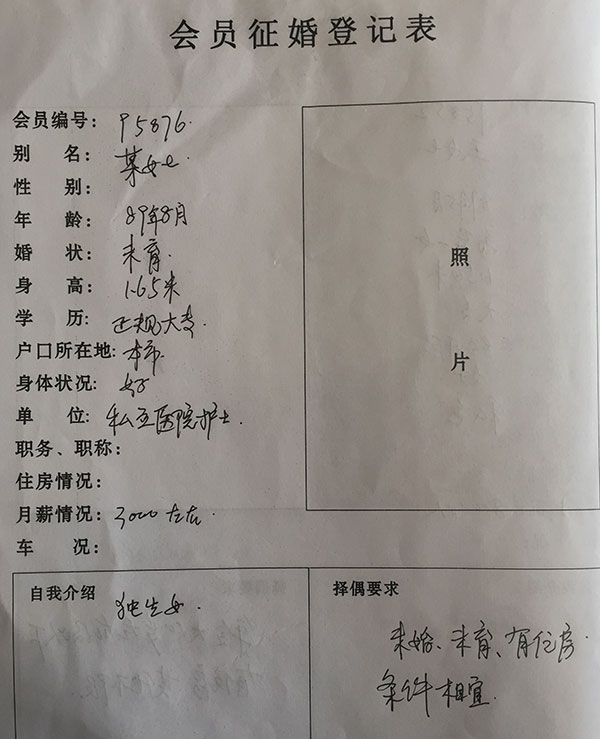 会员征婚登记表
会员编号: 95876.
别 名: 某女士
性 别:
年 龄: 89年8月
婚 状: 未育.
身 高: 1.65米
学 历: 正规大专.
户口所在地: 本市.
身体状况: 好
单 位: 私立医院护士.
职务、职称:
住房情况:
月薪情况: 3000左右.
车 况:
照
片
自我介绍
独生女.
择偶要求
未婚、未育、有住房
条件相宜.